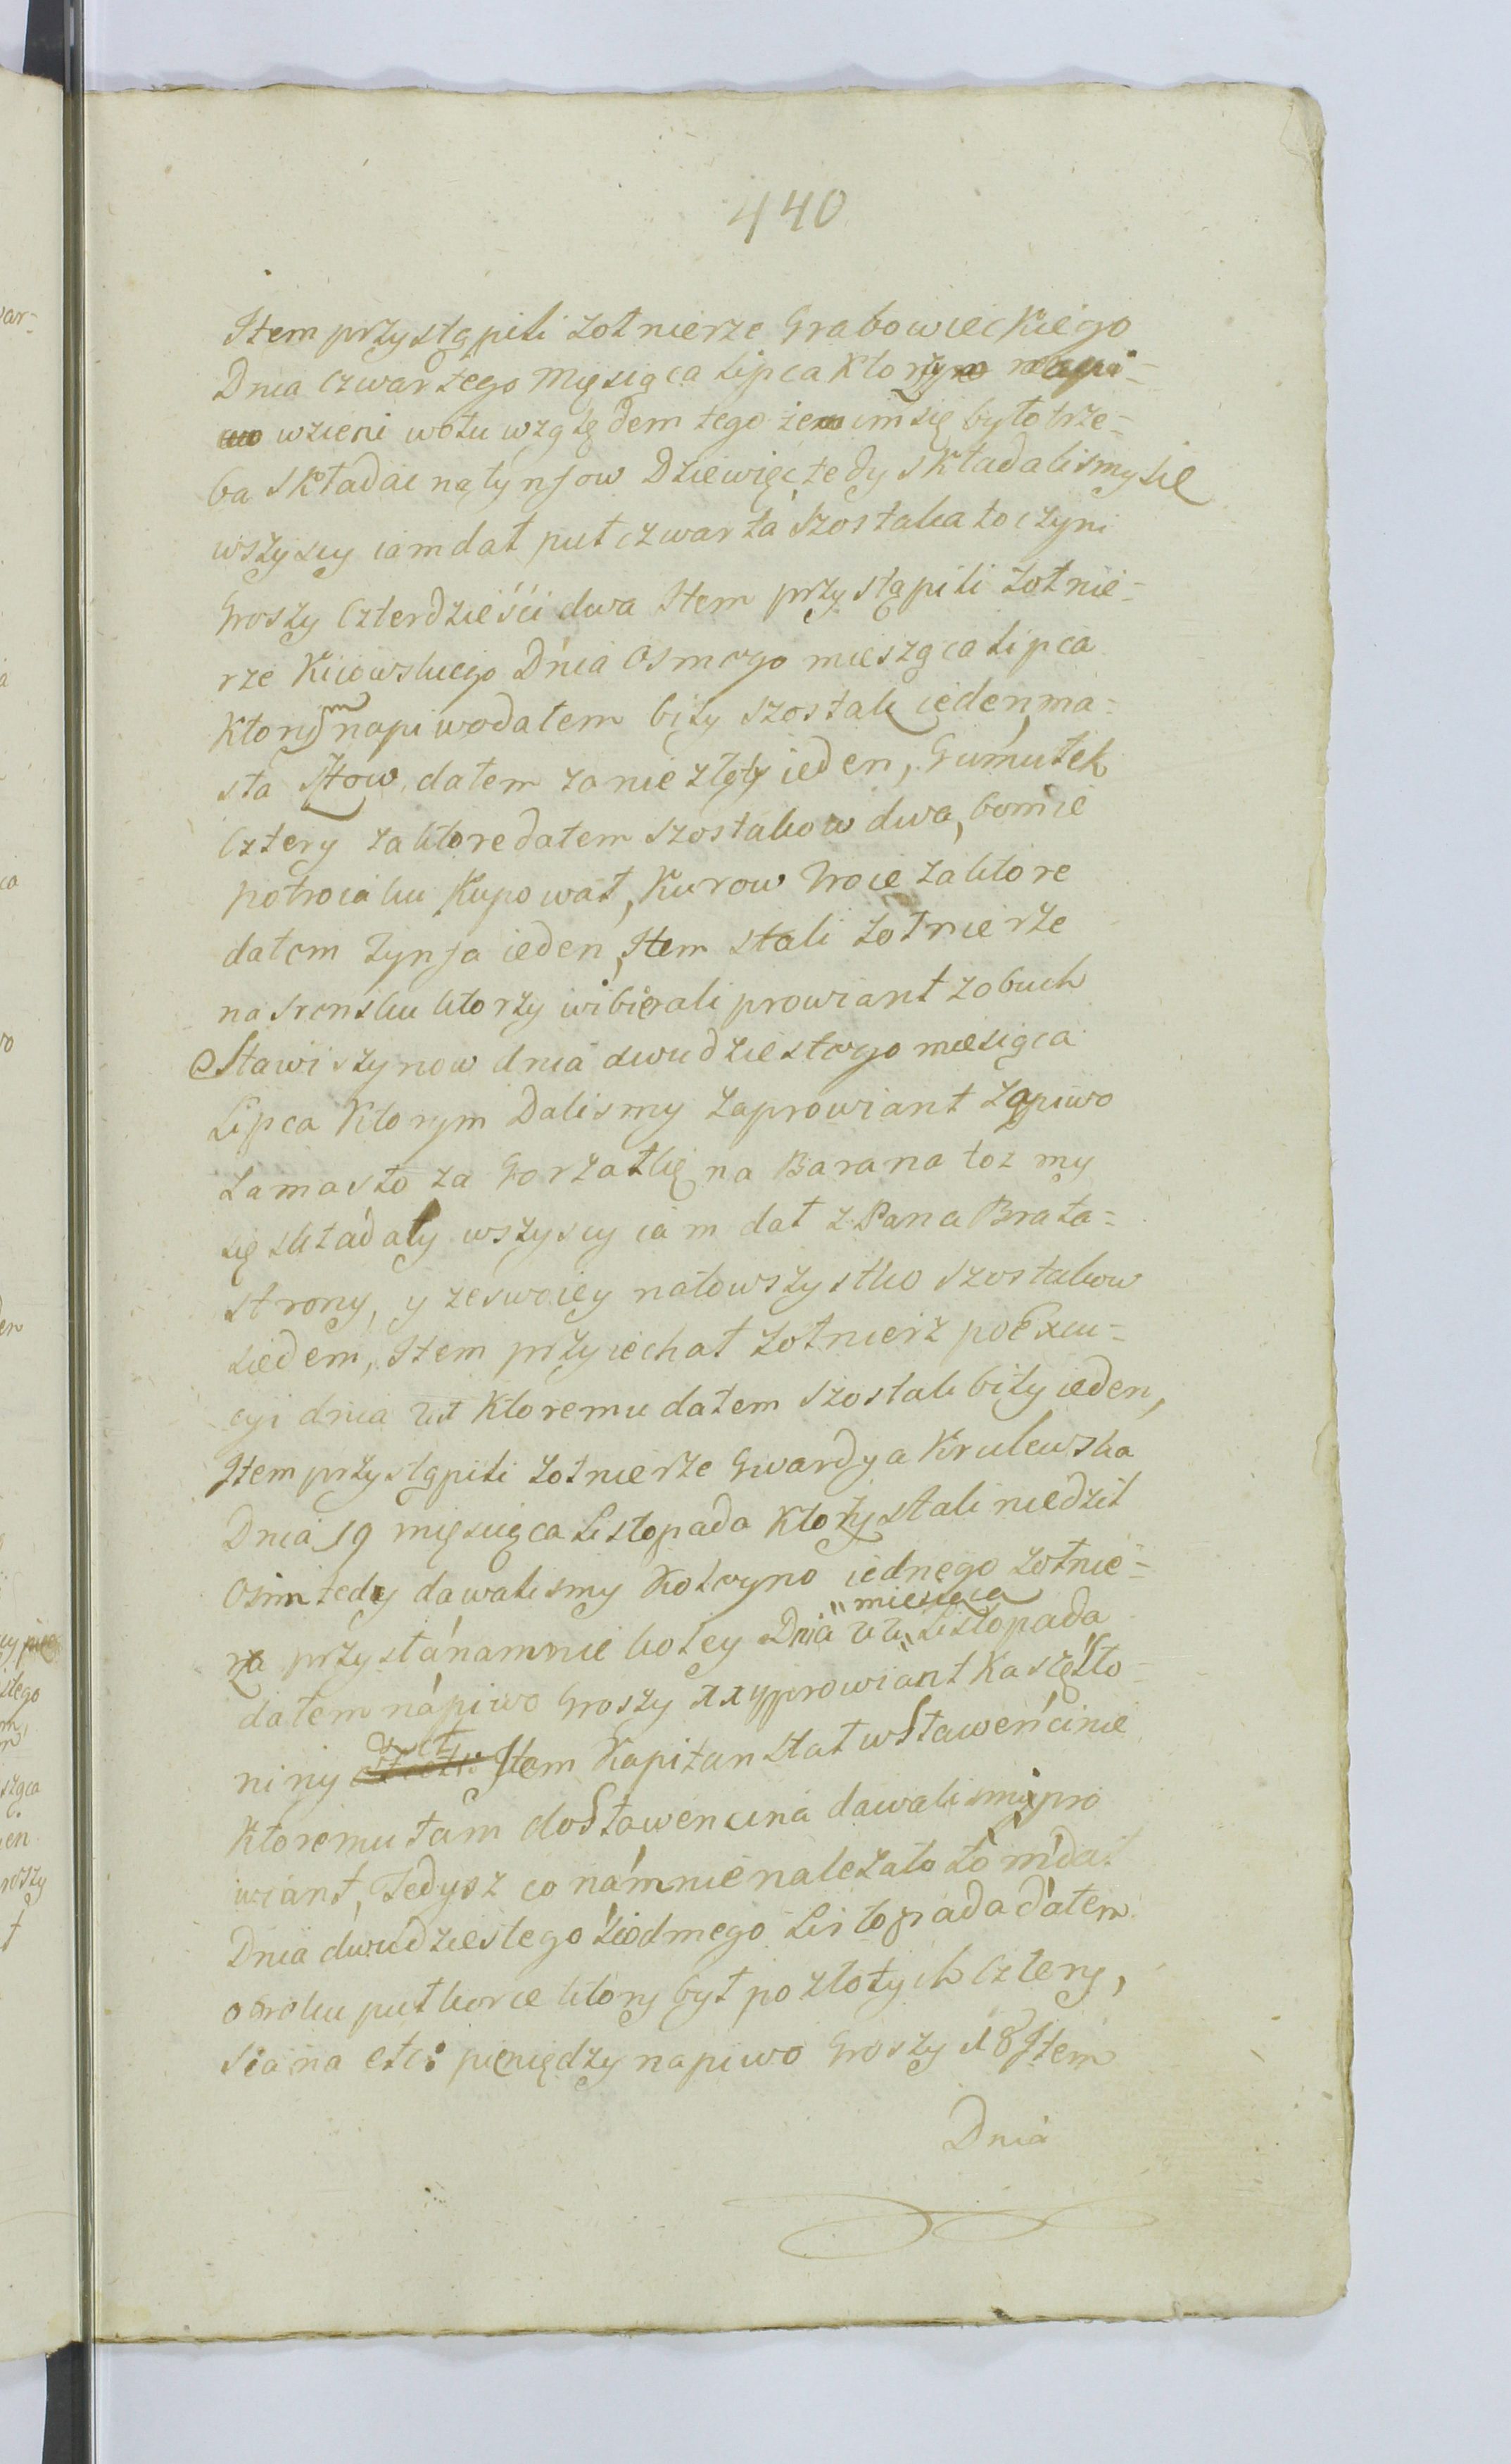 440
Item przystąpili zołnierze Grabowieckiego
Dnia Czwartego Mięsiąca Lipca Ktorzy
wzieni wołu względem tego że im się było trze-
ba składać na tynfow Dziewięć tedy składalismy sie
wszyscy iam dał puł czwarta szostaka to czyni
Groszy Czterdzieści dwa Item przystąpili żołnie-
rze Kiiowskiego Dnia Osmego miesząca Lipca
Ktorym na piwo dałem biły szostak ieden, ma-
sła dałem za nie złoty ieden, Gumułek
Cztery za ktore dałem szostakow dwa, bom ie
po troiaku Kupował, Kurow troie za ktore
dałem Tynfa ieden, Item stali żołnierze
na srensku ktorzy wibierali prowiant z obuch
Stawiszynow dnia dwudziestego miesiąca
Lipca Ktorym Dalismy za prowiant za piwo
za masło za Gorzałkę na Barana toz my
się składaly wszyscy iam dał z Pana Brata-
strony, y ze swoiey na to wszystko szostakow
siedem, Item przyiechał żołnierz po Exeu-
cyi dnia Ktoremu dałem szostak biły ieden,
Item przystąpili żołnierze Gwardya Krulewska
Dnia 19 mięsiąca Listopada Ktorzy stali niedzil
Osim tedy dawalismy Koleyno iednego żołnie-
rza przysła na mnie koley Dnia 22 Listopada
miesiąca
dałem na piwo Groszy xx y prowiant Kasę Sło-
niny Item Kapitan stał w Stawęńcinie
Ktoremu tam do Stawencina dawalismy pro
wiant, Tedysz co na mnie należało to m dał
Dnia dwudziestego siodmego Listopada dałem
obroku puł korce ktory był po złotych Cztery,
siana etc: pieniędzy na piwo Groszy 18 Item
Dnia